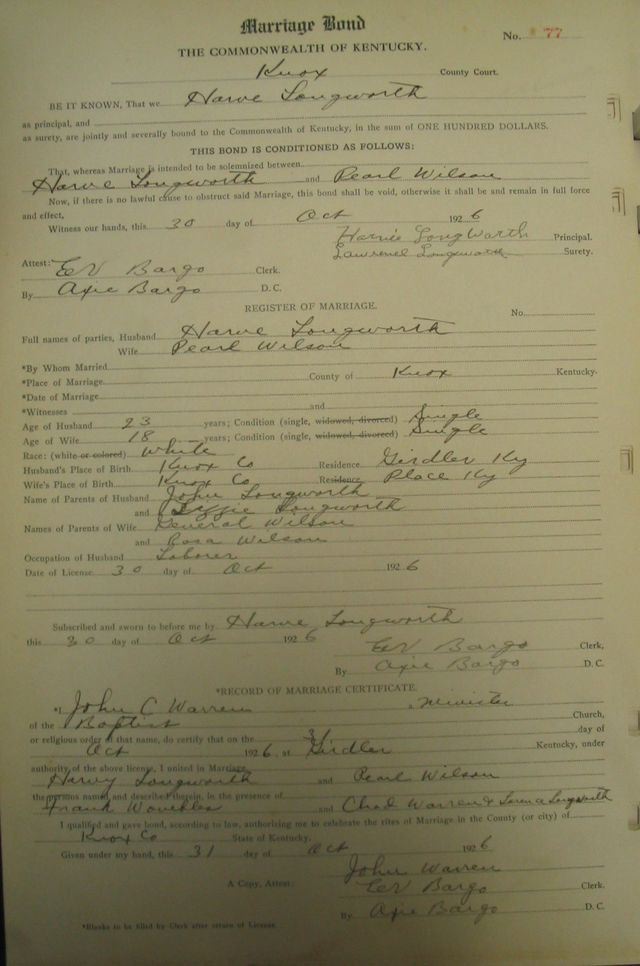 Marriage Bond
No. 77
THE COMMONWEALTH OF KENTUCKY.
Knox County Court.
BE IT KNOWN, That we Harve Longworth
as principal, and
as surety, are jointly and severally bound to the Commonwealth of Kentucky, in the sum of ONE HUNDRED DOLLARS.
THIS BOND IS CONDITIONED AS FOLLOWS:
That, whereas Marriage is intended to be solemnized between
Harve Longworth and Pearl Wilson
Now, if there is no lawful cause to obstruct said Marriage, this bond shall be void, otherwise it shall be and remain in full force
and effect,
Witness our hands, this 30 day of Oct 1926
Harvie LongWarth Principal.
Lawrence Longworth Surety.
Attest: EV Bargo Clerk.
By Axie Bargo D. C.
REGISTER OF MARRIAGE.
No.
Full names of parties, Husband Harve Longworth
Wife Pearl Wilson
*By Whom Married
*Place of Marriage County of Knox Kentucky.
*Date of Marriage
*Witnesses and
Age of Husband 23 years; Condition (single, widowed, divorced) Single
Age of Wife 18 years; Condition (single, widowed, divorced) Single
Race: (white or colored) White
Husband's Place of Birth Knox Co Residence Girdler Ky
Wife's Place of Birth Knox Co Residence Place Ky
Name of Parents of Husband John Longworth
and Lizzie Longworth
Names of Parents of Wife General Wilson
and Rosa Wilson
Occupation of Husband Laborer
Date of License 30 day of Oct 1926
Subscribed and sworn to before me by Harve Longworth
this 30 day of Oct 1926
EV Bargo Clerk,
By Axie Bargo D. C.
*RECORD OF MARRIAGE CERTIFICATE.
*I John C Warren Minister
of the Baptist Church,
or religious order of that name, do certify that on the 31 day of
Oct 1926, at Girdler Kentucky, under
authority of the above license, I united in Marriage
Harvy Longworth and Pearl Wilson
the persons named and described therein, in the presence of
Frank and Chad Warren & Longworth
I qualified and gave bond, according to law, authorizing me to celebrate the rites of Marriage in the County (or city) of
Knox Co State of Kentucky.
Given under my hand, this 31 day of Oct 1926
John Warren
A Copy, Attest: EV Bargo Clerk.
By Axie Bargo D. C.
*Blanks to be filled by Clerk after return of License.